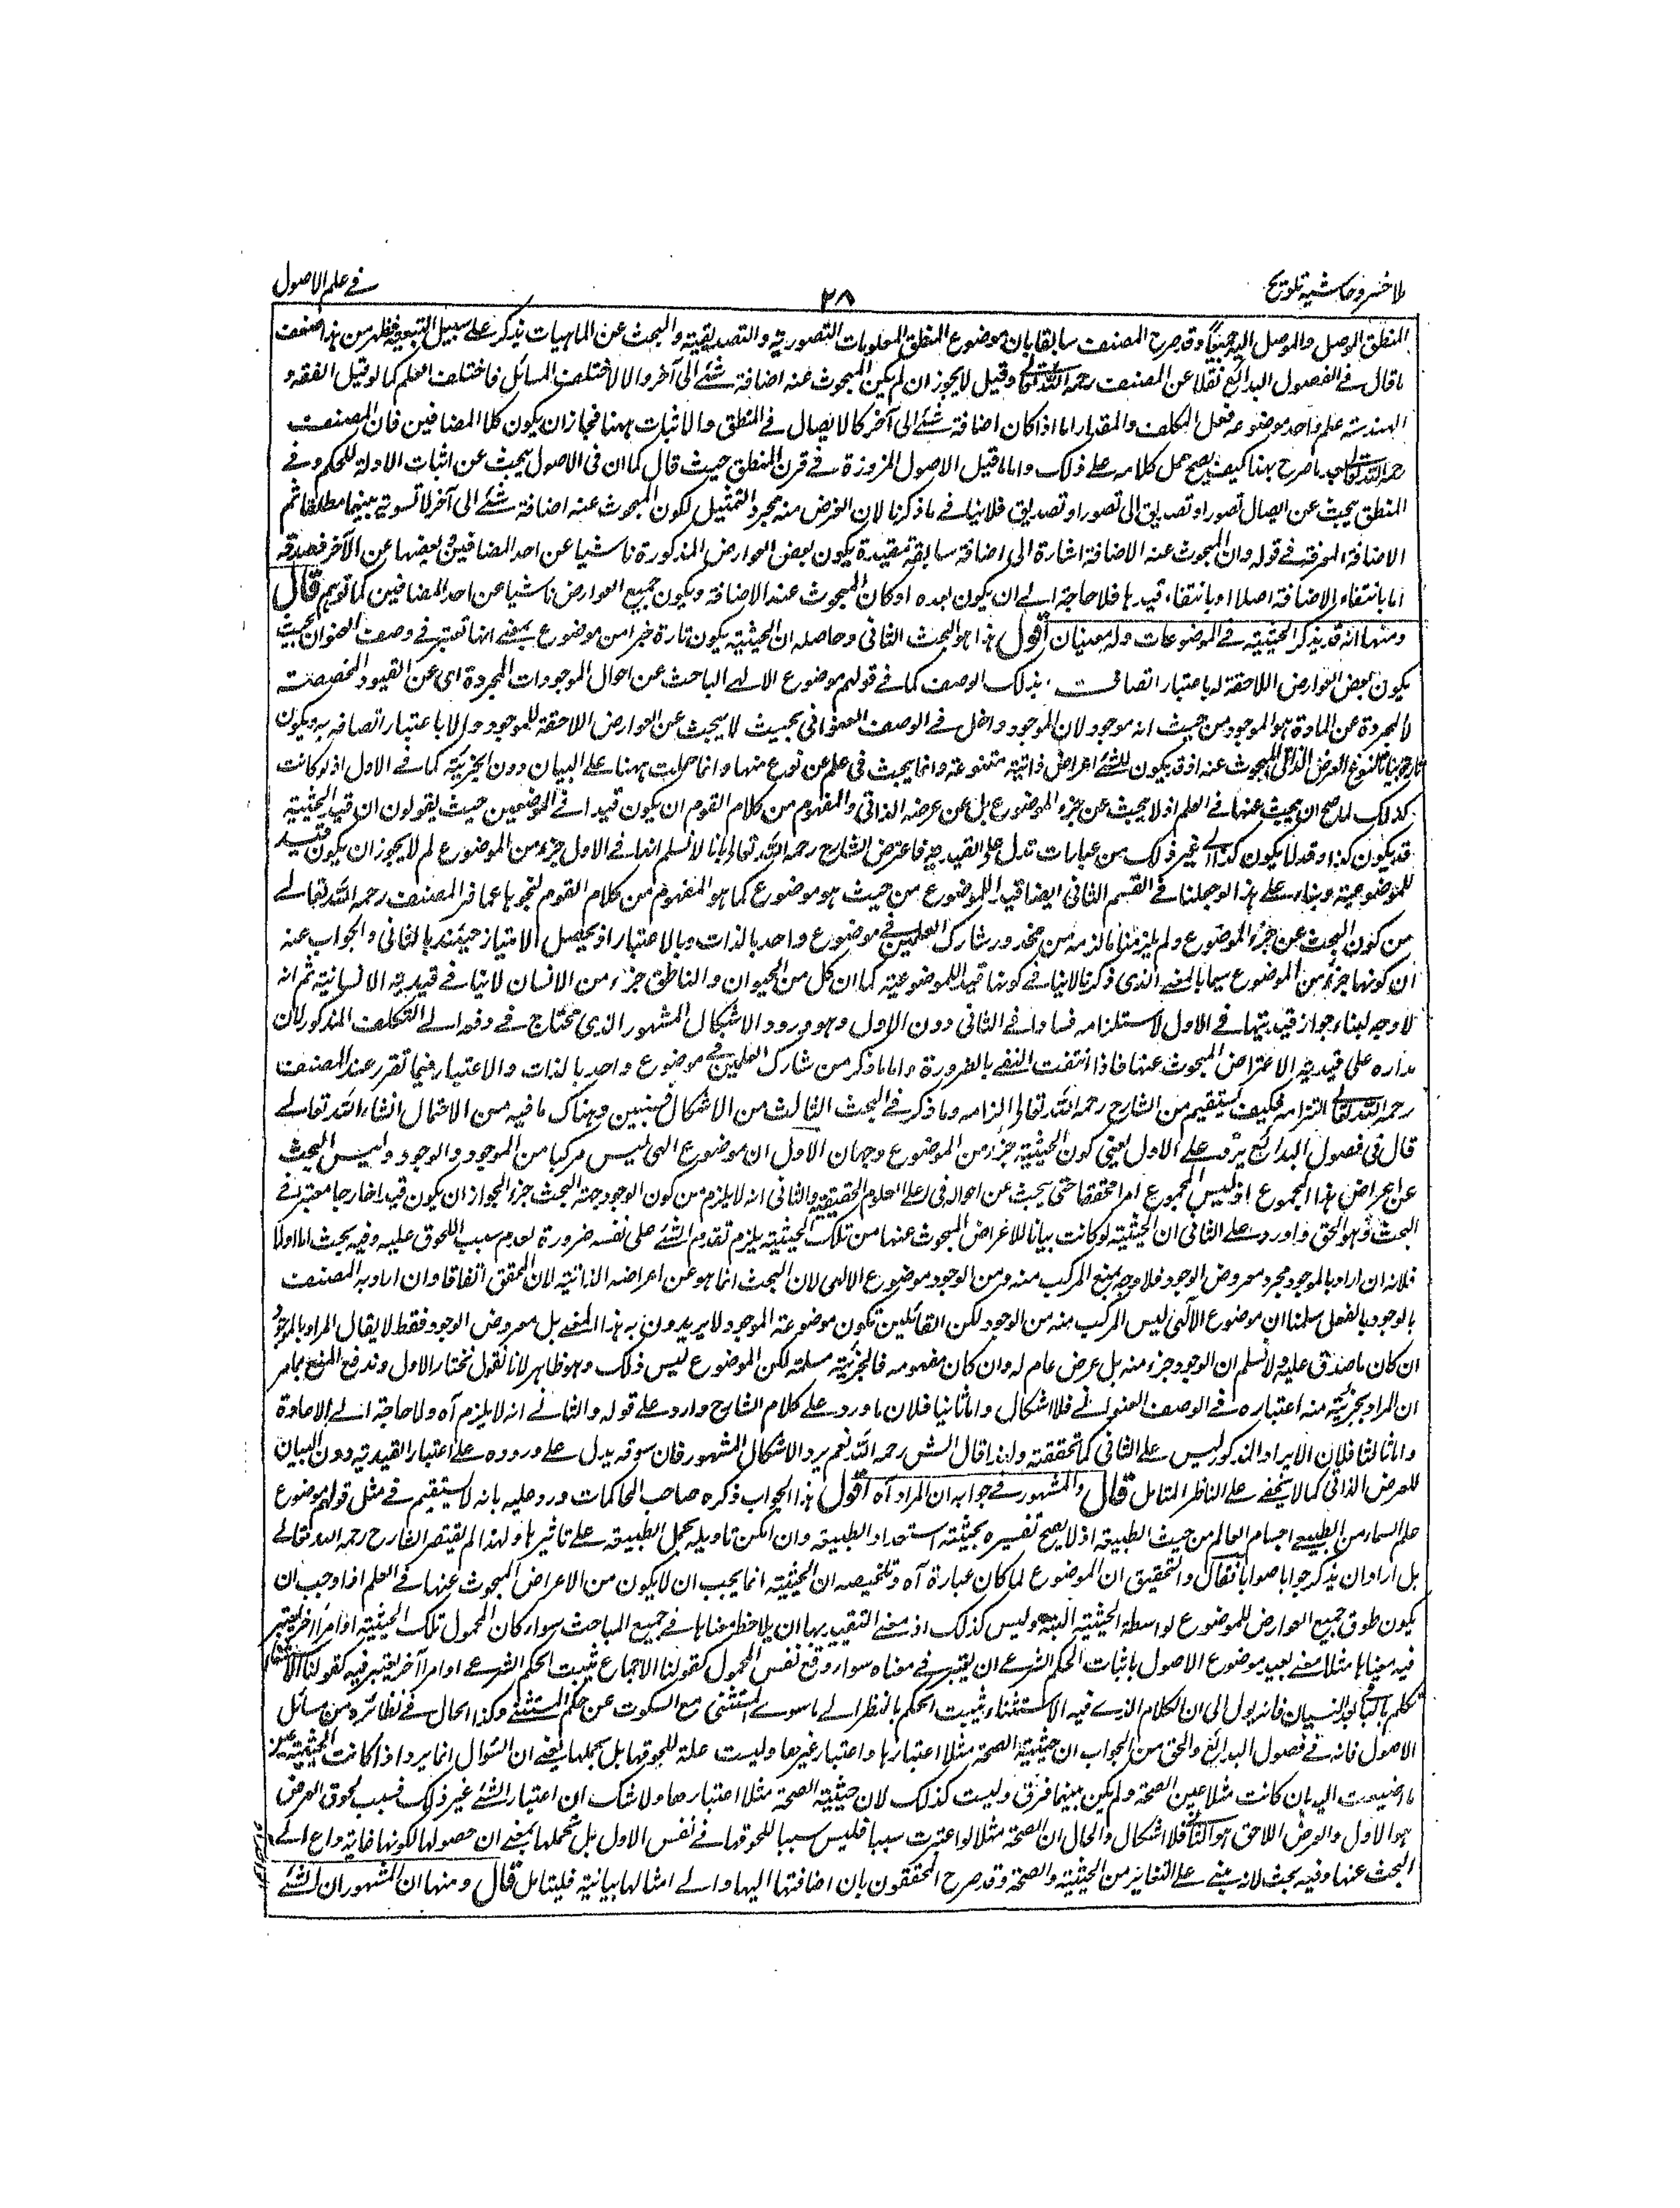 ملا خسرو حاشیه تلویح
۲۸
فے علم الاصول
المنطق الموصل والموصل الیه جمیعًا وقد صرح المصنف سابقا بان موضوع المنطق المعلومات التصوریة والتصدیقیة والبحث عن الماہیات یذکر علے سبیل التبعیة فظہر من ہذا ضعف
ما قال فے الفصول البدائع نقلا عن المصنف رحمه الله تعالے وقیل لا یجوز ان لم یکن المبحوث عنه اضافة شئے الی آخر والا لاختلف المسائل فاختلف العلم کما لو قیل الفقه و
الہندسة علم واحد موضوعه فعل المکلف والمقدار اما اذا کان اضافة شئے الی آخر کالایصال فے المنطق والاثبات ہہنا فجاز ان یکون کلا المضافین فان المصنف
رحمه الله تعالے بعد ما صرح بہذا کیف یصح حمل کلامه علے ذلک واما ما قیل الاصول المزورة فے قرن المنطق حیث قال کما ان فی الاصول یبحث عن اثبات الادلة للحکم وفے
المنطق یبحث عن ایصال تصور او تصدیق الی تصور او تصدیق فلا ینافے ما ذکرنا لان الغرض منه مجرد التمثیل لکون المبحوث عنه اضافة شئے الی آخر لا تسویة بینہما مطلقا ثم
الاضافة المعرفة فے قوله وان المبحوث عنه الاضافة اشارة الی اضافة سابقة مقیدة بکون بعض العوارض المذکورة ناشیا عن احد المضافین وبعضہا عن الآخر فصدقه
اما بانتفاء الاضافة اصلا او بانتفاء قیدہا فلا حاجة الے ان یکون بعده او کان المبحوث عنه الاضافة ویکون جمیع العوارض ناشیا عن احد المضافین کما توہم قال
ومنہا انه قد یذکر الحیثیة فے الموضوعات وله معنیان اقول ہذا ہو البحث الثانی وحاصله ان الحیثیة یکون تارة جزأ من موضوع بمعنے انہا تعتبر فے وصف العنوان بحیث
یکون بعض العوارض اللاحقة له باعتبار اتصافه بذلک الوصف کما فے قولہم موضوع الالہے الباحث عن احوال الموجودات المجردة ای عن القیود المخصصة
لا المجردة عن المادة ہو الموجود من حیث انه موجود لان الموجود داخل فے الوصف العنوانی بحیث لا یبحث عن العوارض اللاحقة للموجود الا باعتبار اتصافه به ویکون
تارة بیانا لنوع العرض الذاتی المبحوث عنه اذ قد یکون للشئے اعراض ذاتیة متنوعة وانما یبحث فی علم عن نوع منہا وانما حملت ہہنا علے البیان دون الجزئیة کما فے الاول اذ لو کانت
کذلک لما صح ان یبحث عنہا فے العلم اذ لا یبحث عن جزء الموضوع بل عن عرضه الذاتی والمفہوم من کلام القوم ان یکون قیدا فے الموضعین حیث یقولون ان قید الحیثیة
قد یکون کذا وقد لا یکون کذا الے غیر ذلک من عبارات تدل علے القیدیة فاعترض الشارح رحمه الله تعالے بانا لا نسلم انہا فے الاول جزء من الموضوع لم لا یجوز ان یکون قید
للموضوعیة وبناء علے ہذا لو جعلنا فے القسم الثانی ایضا قید الموضوع من حیث ہو موضوع کما ہو المفہوم من کلام القوم لنجوہا عما فر المصنف رحمه الله تعالے
من کون البحث عن جزء الموضوع ولم یلزمنا ما لزمه من محذور تشارک العلمین فے موضوع واحد بالذات وبالاعتبار اذ یحصل الامتیاز حینئذ بالثانی والجواب عنه
ان کونہا جزء من الموضوع سیما بالمعنے الذی ذکرنا لا ینافے کونہا قید اللموضوعیة کما ان کل من الحیوان والناطق جزء من الانسان لا ینافے قیدیة الانسانیة ثم انه
لا وجه لبناء جواز قیدیتہا فے الاول لاستلزامه فسادا فے الثانی دون الاول وہو ورود الاشکال المشہور الذی یحتاج فے دفعه الے التکلف المذکور لان
مداره علی قیدیة الاعتراض المبحوث عنہا فاذا انتفت النفے بالضرورة واما ما ذکر من تشارک العلمین فے موضوع واحد بالذات والاعتبار فیما تقرر عند المصنف
رحمه الله تعالے التزامه فکیف یستقیم من الشارح رحمه الله تعالی الزامه وما ذکر فے البحث الثالث من الاشکال فسنبین وہناک ما فیه من الاختلال انشاء الله تعالے
قال فی فصول البدائع یرد علے الاول یعنی کون الحیثیة جزء من الموضوع وجہان الاول ان موضوع الہی لیس مرکبا من الموجود والوجود ولیس البحث
عن اعراض ہذا المجموع اذ لیس المجموع امرا محققا حتی یبحث عن احواله فی اعلے العلوم الحقیقیة والثانی انه لا یلزم من کون الوجود جہة البحث جزء الجواز ان یکون قیدا خارجا معتبرا فے
البحث وہو الحق واورد علے الثانی ان الحیثیة لو کانت بیانا للاعراض المبحوث عنہا من تلک الحیثیة یلزم تقدم الشئے علی نفسه ضرورة تقدم سبب اللحوق علیه وفیه بحث اما اولا
فلانه ان اراد بالموجود مجرد معروض الوجود فلا وجه لمنع المرکب منه ومن الوجود موضوع الالہی لان البحث انما ہو عن اعراضه الذاتیة لان المحقق اتفاقا وان اراد به المصنف
بالوجود بالفعل سلمنا ان موضوع الآلہی لیس المرکب منه من الوجود لکن القائلین بکون موضوعه الموجود لا یریدون به ہذا المعنے بل معروض الوجود فقط لا یقال المراد بالموجود
ان کان ما صدق علیه لا نسلم ان الوجود جزء منه بل عرض عام له وان کان مفہومه فالجزئیة مسلمة لکن الموضوع لیس ذلک وہو ظاہر لانا نقول نختار الاول وندفع المنع بما مر
ان المراد بجزئیة منه اعتباره فے الوصف العنوانے فلا اشکال واما ثانیا فلان ما ورد علے کلام الشارح وارد علے قوله والثانے انه لا یلزم آه ولا حاجة الے الاعادة
واما ثالثا فلان الایراد المذکور لیس علے الثانی کما تحققته ولذا قال الش رحمه الله نعم یرد الاشکال المشہور فان سوقه یدل علے وروده علے اعتبار القیدیة دون البیان
للعرض الذاتی کما لا یخفے علے الناظر المتامل قال والمشہور فے جوابه ان المراد آه اقول ہذا الجواب ذکره صاحب المحاکمات ورد علیه بانه لا یستقیم فے مثل قولہم موضوع
علم السماء من الطبیعے اجسام العالم من حیث الطبیعة اذ لا یصح تفسیره بحیثیة استعداد الطبیعة وان امکن تاویله بحمل الطبیعة علے تاثیرہا ولہذا لم یقتصر الشارح رحمه الله تعالے
بل اراد ان یذکر جوابا صوابا فقال والتحقیق ان الموضوع لما کان عبارة آه وتلخیصه ان الحیثیة انما یجب ان لا یکون من الاعراض المبحوث عنہا فے العلم اذا وجب ان
یکون لحوق جمیع العوارض للموضوع بواسطة الحیثیة البتة ولیس کذلک اذ معنے التقیید بہا ان یلاحظ معناہا فے جمیع المباحث سواء کان المحمول تلک الحیثیة او امرا آخر یعتبر
فیه معناہا مثلا معنے تقیید موضوع الاصول باثبات الحکم الشرعے ان یعتبر فے معناه سواء وقع نفس المحمول کقولنا الاجماع یثبت الحکم الشرعے او امرا آخر یعتبر فیه کقولنا الاستثناء
تکلم بالباقی بعد الثنیا فانه یول الی ان الکلام الذے فیه الاستثناء یثبت الحکم بالنظر الے ما سوے المستثنی مع السکوت عن حکم المستثنے وکذا الحال فے نظائره من مسائل
الاصول فانه فے فصول البدائع والحق من الجواب ان حیثیة الصحة مثلا اعتبارہا واعتبار غیرہا ولیست علة للحوقہا بل بحملہا یعنے ان السوال انما یرد اذا کانت الحیثیة عین
ما اضیفت الیه بان کانت مثلا عین الصحة ولم یکن بینہما فرق ولیست کذلک لان حیثیة الصحة مثلا اعتبارہا ولا شک ان اعتبار الشئے غیر ذلک فسبب لحوق العرض
ہو الاول والعرض اللاحق ہو الثانے فلا اشکال والحال ان الصحة مثلا لو اعتبرت سببا فلیس سببا للحوقہا فے نفس الاول بل تحملہا بمعنے ان حصولہا لکونہا غایة داع الے
البحث عنہا وفیه بحث لانه یبنے علے التغایر من الحیثیة والصحة وقد صرح المحققون بان اضافتہا الیہا والے امثالہا بیانیة فلیتامل قال ومنہا ان المشہور ان الشئے